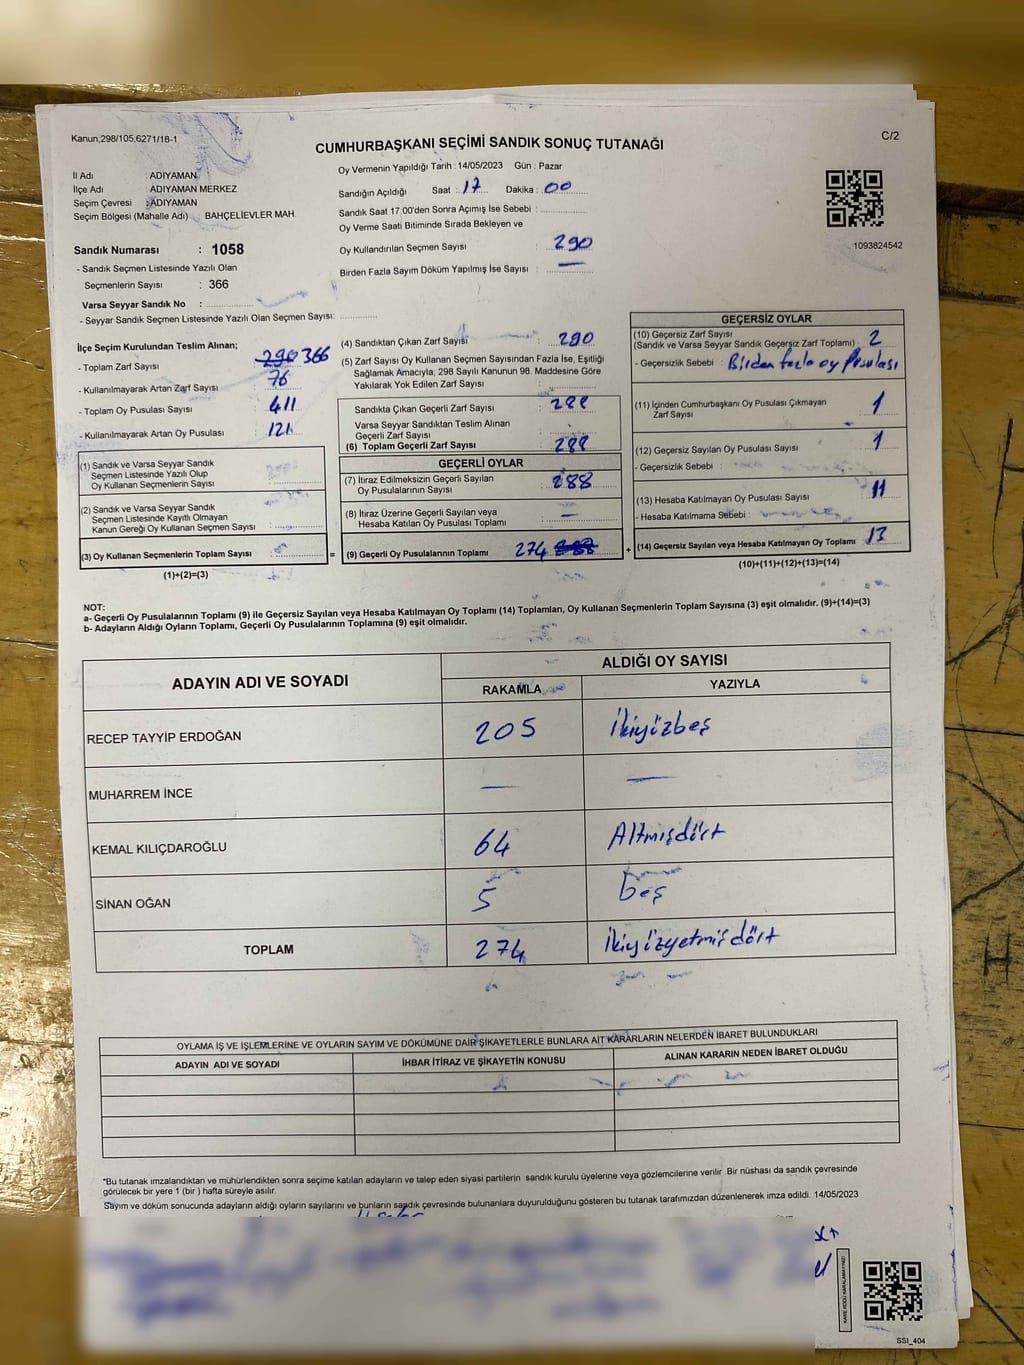 Kanun;298/105;6271/18-1
C/2
CUMHURBAŞKANI SEÇİMİ SANDIK SONUÇ TUTANAĞI
Oy Vermenin Yapıldığı Tarih : 14/05/2023 Gün : Pazar
İl Adı : ADIYAMAN
İlçe Adı : ADIYAMAN MERKEZ
Seçim Çevresi : ADIYAMAN
Seçim Bölgesi (Mahalle Adı) : BAHÇELİEVLER MAH.
Sandığın Açıldığı Saat : 17 Dakika : 00
Sandık Saat 17:00'den Sonra Açımış İse Sebebi :
Oy Verme Saati Bitiminde Sırada Bekleyen ve
Oy Kullandırılan Seçmen Sayısı : 290
Birden Fazla Sayım Döküm Yapılmış İse Sayısı : —
1093824542
Sandık Numarası : 1058
- Sandık Seçmen Listesinde Yazılı Olan
Seçmenlerin Sayısı : 366
Varsa Seyyar Sandık No :
- Seyyar Sandık Seçmen Listesinde Yazılı Olan Seçmen Sayısı:
İlçe Seçim Kurulundan Teslim Alınan;
- Toplam Zarf Sayısı : 290 366
- Kullanılmayarak Artan Zarf Sayısı : 76
- Toplam Oy Pusulası Sayısı : 411
- Kullanılmayarak Artan Oy Pusulası : 121
(1) Sandık ve Varsa Seyyar Sandık
Seçmen Listesinde Yazılı Olup
Oy Kullanan Seçmenlerin Sayısı :
(2) Sandık ve Varsa Seyyar Sandık
Seçmen Listesinde Kayıtlı Olmayan
Kanun Gereği Oy Kullanan Seçmen Sayısı :
(3) Oy Kullanan Seçmenlerin Toplam Sayısı :
(1)+(2)=(3)
(4) Sandıktan Çıkan Zarf Sayısı : 290
(5) Zarf Sayısı Oy Kullanan Seçmen Sayısından Fazla İse, Eşitliği
Sağlamak Amacıyla, 298 Sayılı Kanunun 98. Maddesine Göre
Yakılarak Yok Edilen Zarf Sayısı :
Sandıkta Çıkan Geçerli Zarf Sayısı : 288
Varsa Seyyar Sandıktan Teslim Alınan
Geçerli Zarf Sayısı :
(6) Toplam Geçerli Zarf Sayısı : 288
GEÇERLİ OYLAR
(7) İtiraz Edilmeksizin Geçerli Sayılan
Oy Pusulalarının Sayısı : 288
(8) İtiraz Üzerine Geçerli Sayılan veya
Hesaba Katılan Oy Pusulası Toplamı : —
= (9) Geçerli Oy Pusulalarının Toplamı 274 288 +
GEÇERSİZ OYLAR
(10) Geçersiz Zarf Sayısı
(Sandık ve Varsa Seyyar Sandık Geçersiz Zarf Toplamı) : 2
- Geçersizlik Sebebi : Birden fazla oy Pusulası
(11) İçinden Cumhurbaşkanı Oy Pusulası Çıkmayan
Zarf Sayısı : 1
(12) Geçersiz Sayılan Oy Pusulası Sayısı : 1
- Geçersizlik Sebebi :
(13) Hesaba Katılmayan Oy Pusulası Sayısı : 11
- Hesaba Katılmama Sebebi :
(14) Geçersiz Sayılan veya Hesaba Katılmayan Oy Toplamı : 13
(10)+(11)+(12)+(13)=(14)
NOT:
a- Geçerli Oy Pusulalarının Toplamı (9) ile Geçersiz Sayılan veya Hesaba Katılmayan Oy Toplamı (14) Toplamları, Oy Kullanan Seçmenlerin Toplam Sayısına (3) eşit olmalıdır. (9)+(14)=(3)
b- Adayların Aldığı Oyların Toplamı, Geçerli Oy Pusulalarının Toplamına (9) eşit olmalıdır.
ADAYIN ADI VE SOYADI
ALDIĞI OY SAYISI
RAKAMLA
YAZIYLA
RECEP TAYYİP ERDOĞAN 205 İkiyüzbeş
MUHARREM İNCE — —
KEMAL KILIÇDAROĞLU 64 Altmışdört
SİNAN OĞAN 5 beş
TOPLAM 274 İkiyüzyetmişdört
OYLAMA İŞ VE İŞLEMLERİNE VE OYLARIN SAYIM VE DÖKÜMÜNE DAİR ŞİKAYETLERLE BUNLARA AİT KARARLARIN NELERDEN İBARET BULUNDUKLARI
ADAYIN ADI VE SOYADI
İHBAR İTİRAZ VE ŞİKAYETİN KONUSU
ALINAN KARARIN NEDEN İBARET OLDUĞU
*Bu tutanak imzalandıktan ve mühürlendikten sonra seçime katılan adayların ve talep eden siyasi partilerin sandık kurulu üyelerine veya gözlemcilerine verilir .Bir nüshası da sandık çevresinde
görülecek bir yere 1 (bir ) hafta süreyle asılır.
Sayım ve döküm sonucunda adayların aldığı oyların sayılarını ve bunların sandık çevresinde bulunanlara duyurulduğunu gösteren bu tutanak tarafımızdan düzenlenerek imza edildi. 14/05/2023
SSI_404